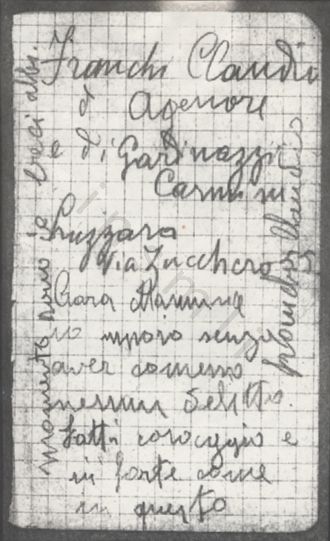 Franchi Claudio
d Agenore
e di Garinazzi
Carmini
Luzzara
Via Zucchero 5
Cara Mamma
io muoio senza
aver comesso
nessun delitto.
Fatti coraggio e
sii forte come
in questo
momento sono io baci abbr.
Franchi Claudio